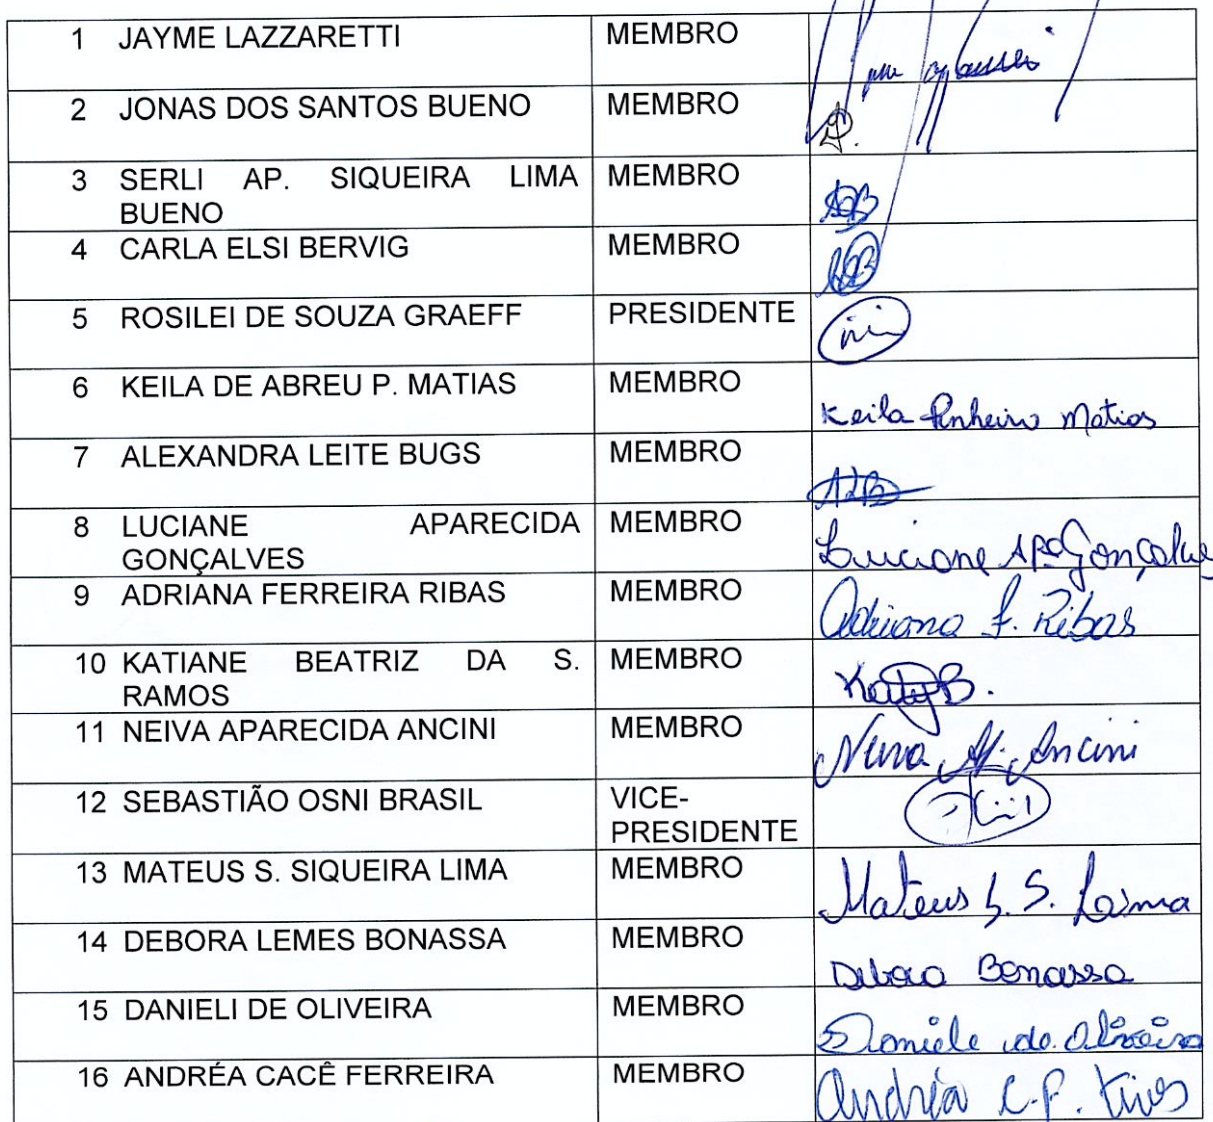 1 JAYME LAZZARETTI MEMBRO
2 JONAS DOS SANTOS BUENO MEMBRO
3 SERLI AP. SIQUEIRA LIMA MEMBRO
BUENO
4 CARLA ELSI BERVIG MEMBRO
5 ROSILEI DE SOUZA GRAEFF PRESIDENTE
6 KEILA DE ABREU P. MATIAS MEMBRO
Keila Pinheiro Matias
7 ALEXANDRA LEITE BUGS MEMBRO
ALB
8 LUCIANE APARECIDA MEMBRO
GONÇALVES
Luciane Apª Gonçalves
9 ADRIANA FERREIRA RIBAS MEMBRO
Adriana F. Ribas
10 KATIANE BEATRIZ DA S. MEMBRO
RAMOS
Katy B.
11 NEIVA APARECIDA ANCINI MEMBRO
Neiva Ap. Ancini
12 SEBASTIÃO OSNI BRASIL VICE-
PRESIDENTE
13 MATEUS S. SIQUEIRA LIMA MEMBRO
Mateus S. S. Laima
14 DEBORA LEMES BONASSA MEMBRO
Debora Bonassa
15 DANIELI DE OLIVEIRA MEMBRO
Daniele de Oliveira
16 ANDRÉA CACÊ FERREIRA MEMBRO
Andréa C. F.